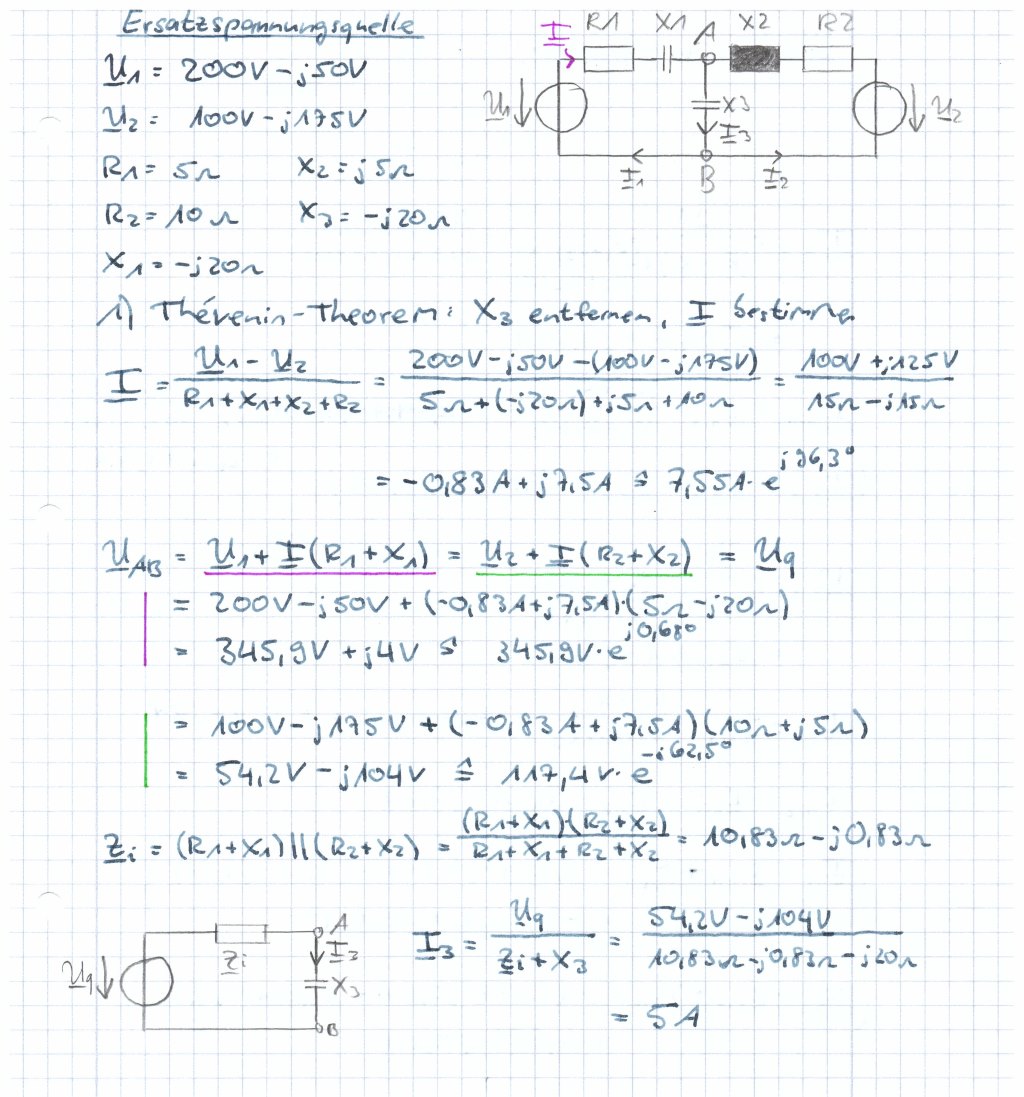 Ersatzspannungsquelle
U1 = 200V - j50V
U2 = 100V - j175V
R1 = 5Ω X2 = j5Ω
R2 = 10Ω X3 = -j20Ω
X1 = -j20Ω
I R1 X1 A X2 R2
U1 X3 U2
I3
I1 B I2
1) Thévenin-Theorem: X3 entfernen, I bestimmen
I = (U1 - U2)/(R1+X1+X2+R2) = (200V - j50V - (100V - j175V))/(5Ω + (-j20Ω) + j5Ω + 10Ω) = (100V + j125V)/(15Ω - j15Ω)
= -0,83A + j7,5A ≙ 7,55A · e^j96,3°
UAB = U1 + I(R1+X1) = U2 + I(R2+X2) = Uq
= 200V - j50V + (-0,83A + j7,5A)·(5Ω - j20Ω)
= 345,9V + j4V ≙ 345,9V · e^j0,68°
= 100V - j175V + (-0,83A + j7,5A)(10Ω + j5Ω)
= 54,2V - j104V ≙ 117,4V · e^-j62,5°
Zi = (R1+X1)||(R2+X2) = (R1+X1)·(R2+X2)/(R1+X1+R2+X2) = 10,83Ω - j0,83Ω
A
Uq Zi I3
X3
B
I3 = Uq/(Zi+X3) = (54,2V - j104V)/(10,83Ω - j0,83Ω - j20Ω)
= 5A